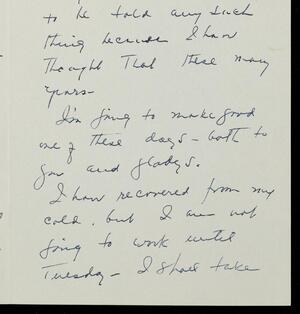 to be told any such
thing because I have
thought that these many
years—
I'm going to make good
one of these days – both to
you and Gladys.
I have recovered from my
cold, but I am not
going to work until
Tuesday – I shall take